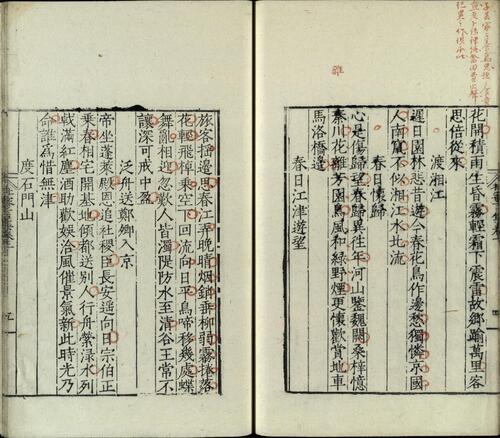 花開積雨生昏霧輕霜下震雷故鄉踰萬里客
思倍從來
渡湘江
遲日園林悲昔遊今春花鳥作邊愁獨憐京國
人南竄不似湘江水北流
春日懷歸
心是傷歸望春歸異往年河山鑒魏闕桑梓憶
秦川花雜芳園鳥風和綠野煙更懷歡賞地車
馬洛橋邊
春日江津遊望
旅客搖邊思春江弄晚晴烟銷垂柳弱霧捲落
花輕飛棹乘空下回流向日平鳥啼移幾處蝶
舞亂相迎忽歎人皆濁隄防水至清谷王常不
讓深可戒中盈
泛舟送鄭卿入京
帝坐蓬萊殿恩追社稷臣長安遙向日宗伯正
乘春相宅開基地傾都送別人行舟縈淥水列
戟滿紅塵酒助歡娛洽風催景氣新此時光乃
命誰為惜無津
度石門山